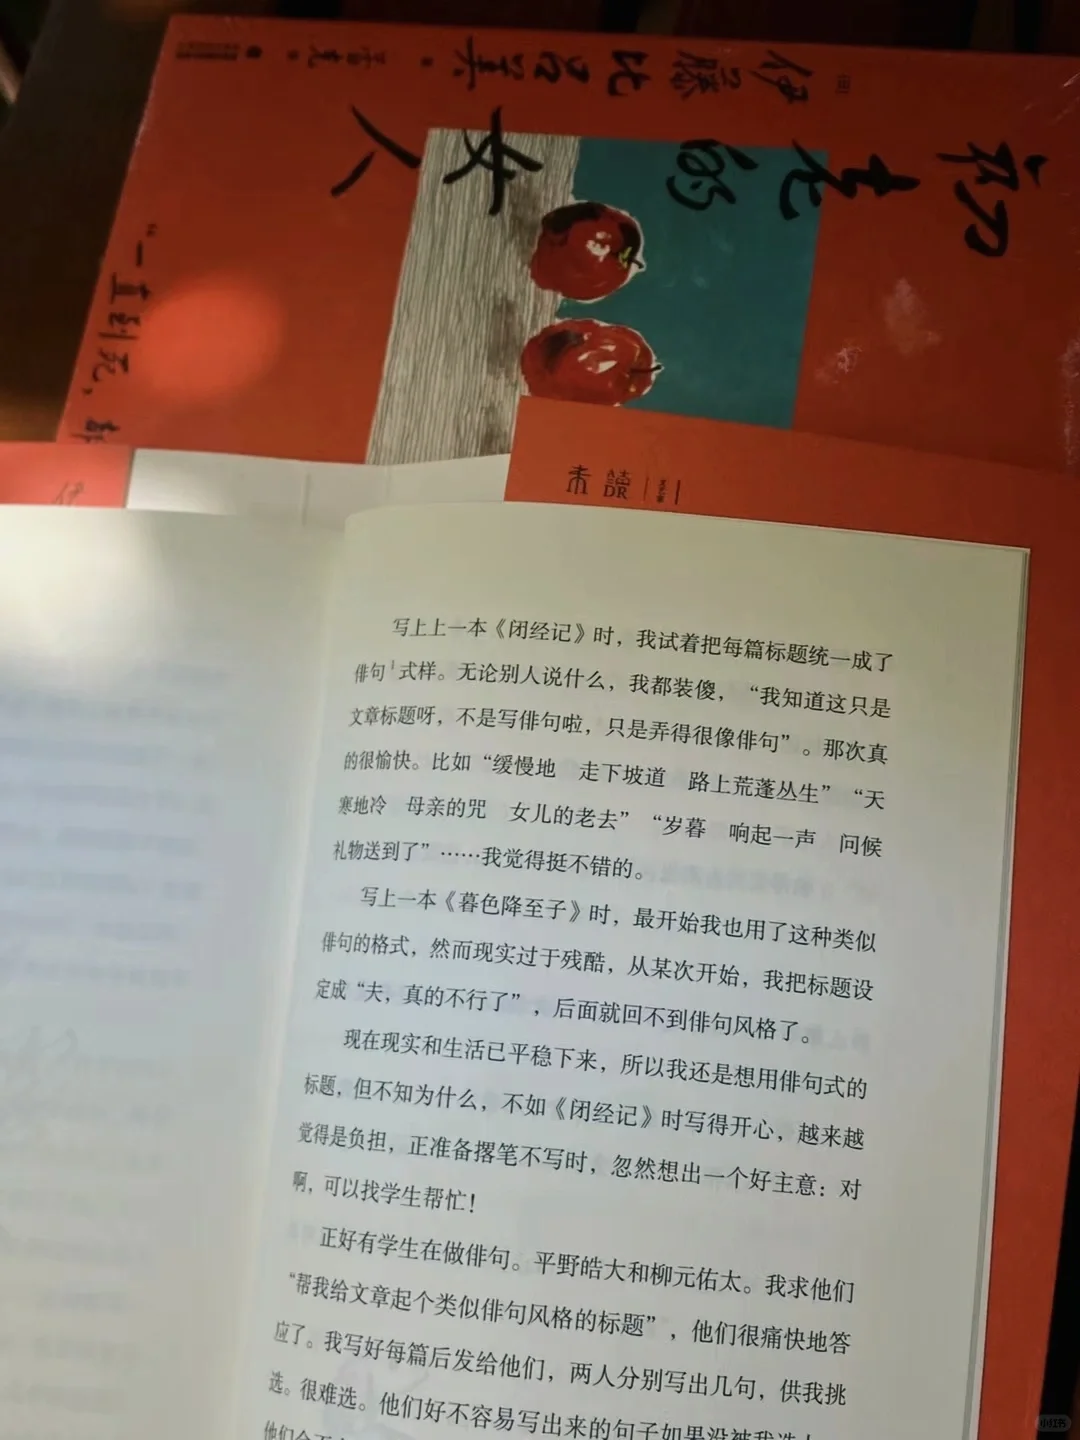 [日]
伊藤比吕美 著
蕾克 译
初老的女人
“一直到死，都
未读
READ
文艺家
写上上一本《闭经记》时，我试着把每篇标题统一成了
俳句¹式样。无论别人说什么，我都装傻，“我知道这只是
文章标题呀，不是写俳句啦，只是弄得很像俳句”。那次真
的很愉快。比如“缓慢地　走下坡道　路上荒蓬丛生”“天
寒地冷　母亲的咒　女儿的老去”“岁暮　响起一声　问候
礼物送到了”……我觉得挺不错的。
写上一本《暮色降至子》时，最开始我也用了这种类似
俳句的格式，然而现实过于残酷，从某次开始，我把标题设
定成“夫，真的不行了”，后面就回不到俳句风格了。
现在现实和生活已平稳下来，所以我还是想用俳句式的
标题，但不知为什么，不如《闭经记》时写得开心，越来越
觉得是负担，正准备撂笔不写时，忽然想出一个好主意：对
啊，可以找学生帮忙！
正好有学生在做俳句。平野皓大和柳元佑太。我求他们
“帮我给文章起个类似俳句风格的标题”，他们很痛快地答
应了。我写好每篇后发给他们，两人分别写出几句，供我挑
选。很难选。他们好不容易写出来的句子如果没被我选上，
小红书